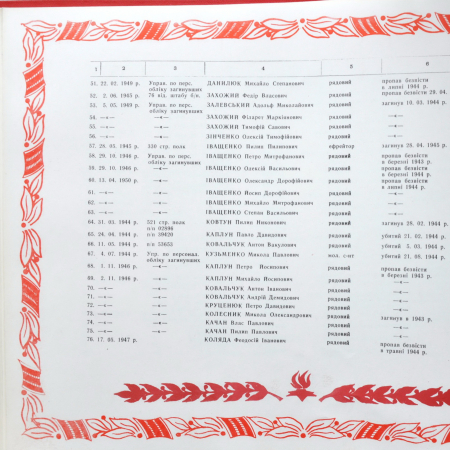 1 2 3 4 5 6
51. 22. 02. 1949 р. Управ. по перс. ДАНИЛЮК Михайло Степанович рядовий пропав безвісти
обліку загинувших в липні 1944 р.
52. 2. 06. 1965 р. 76 від. штабу б/н. ЗАХОЖИЙ Федір Власович рядовий пропав безвісти 28. 04.
53. 5. 05. 1969 р. Управ. по перс. ЗАЛЕВСЬКИЙ Адольф Миколайович рядовий загинув 10. 03. 1944 р.
обліку загинувших
54. —«— —«— ЗАХОЖИЙ Філарет Маркіянович рядовий —«—
55. —«— —«— ЗАХОЖИЙ Тимофій Савович рядовий —«—
56. —«— —«— ЗІНЧЕНКО Олексій Тимофійович рядовий —«—
57. 26. 05. 1945 р. 330 стр. полк ІВАЩЕНКО Пилип Пилипович єфрейтор загинув 26. 04. 1945 р.
58. 29. 10. 1946 р. Управ. по перс. ІВАЩЕНКО Петро Митрофанович рядовий пропав безвісти
обліку загинувших в березні 1943 р.
59. 29. 10. 1946 р. —«— ІВАЩЕНКО Олексій Васильович рядовий пропав безвісти
в березні 1944 р.
60. 13. 04. 1950 р. —«— ІВАЩЕНКО Олександр Дорофійович рядовий пропав безвісти
в липні 1944 р.
61. —«— —«— ІВАЩЕНКО Йосип Дорофійович рядовий —«—
62. —«— —«— ІВАЩЕНКО Михайло Митрофанович рядовий —«—
63. —«— —«— ІВАЩЕНКО Степан Васильович рядовий —«—
64. 31. 03. 1944 р. 521 стр. полк КОВТУН Пилип Никонович рядовий загинув 28. 02. 1944 р.
п/п 02896
65. 24. 04. 1944 р. п/п 39420 КАПЛУН Павло Давидович рядовий убитий 21. 03. 1944 р.
66. 11. 05. 1944 р. п/п 53653 КОВАЛЬЧУК Антон Вакулович рядовий убитий 5. 05. 1944 р.
67. 4. 07. 1944 р. Упр. по персонал. КУЗЬМЕНКО Микола Павлович мол. с-нт убитий 21. 06. 1944 р.
обліку загинувших
68. 1. 11. 1946 р. —«— КАПЛУН Петро Йосипович рядовий пропав безвісти
в березні 1943 р.
69. 2. 11. 1946 р. —«— КАПЛУН Михайло Йосипович рядовий —«—
70. —«— —«— КОВАЛЬЧУК Антон Іванович рядовий —«—
71. —«— —«— КОВАЛЬЧУК Андрій Демидович рядовий —«—
72. —«— —«— КРУЦЕНЮК Петро Давидович рядовий —«—
73. —«— —«— КОЛЕСНИК Микола Олександрович рядовий загинув в 1943 р.
74. —«— —«— КАЧАН Влас Павлович рядовий —«—
75. —«— —«— КАЧАН Пилип Павлович рядовий —«—
76. 17. 05. 1947 р. —«— КОЛЯДА Феодосій Іванович рядовий пропав безвісти
в травні 1944 р.